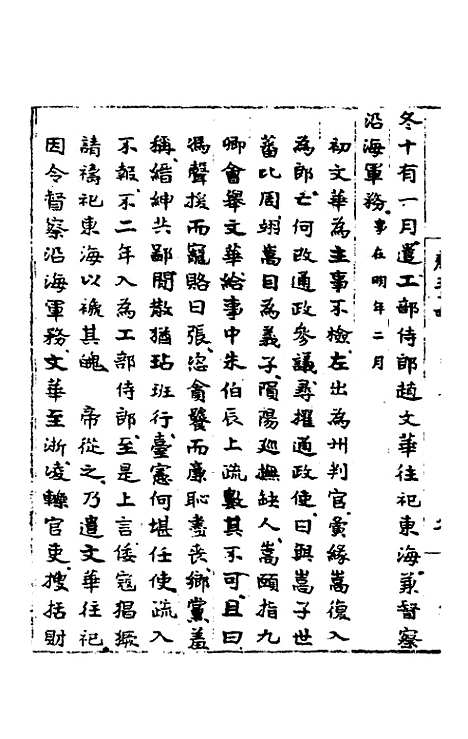 冬十有一月遣工部侍郎趙文華往祀東海兼督察
沿海軍務事在明年二月
初文華為主事不檢左出為州判官夤緣嵩復入
為郎亡何改通政參議尋擢通政使日與嵩子世
蕃比周翊嵩目為義子隕陽巡撫缺人嵩頤指九
卿會舉文華給事中朱伯辰上疏數其不可且曰
馮聲援而寵賂日張恣貪饕而廉恥盡喪鄉黨羞
稱縉紳共鄙閒散猶玷班行臺憲何堪任使疏入
不報不二年入為工部侍郎至是上言倭寇猖獗
請禱祀東海以禳其醜 帝從之乃遣文華往祀
因令督察沿海軍務文華至浙凌轢官吏搜括財